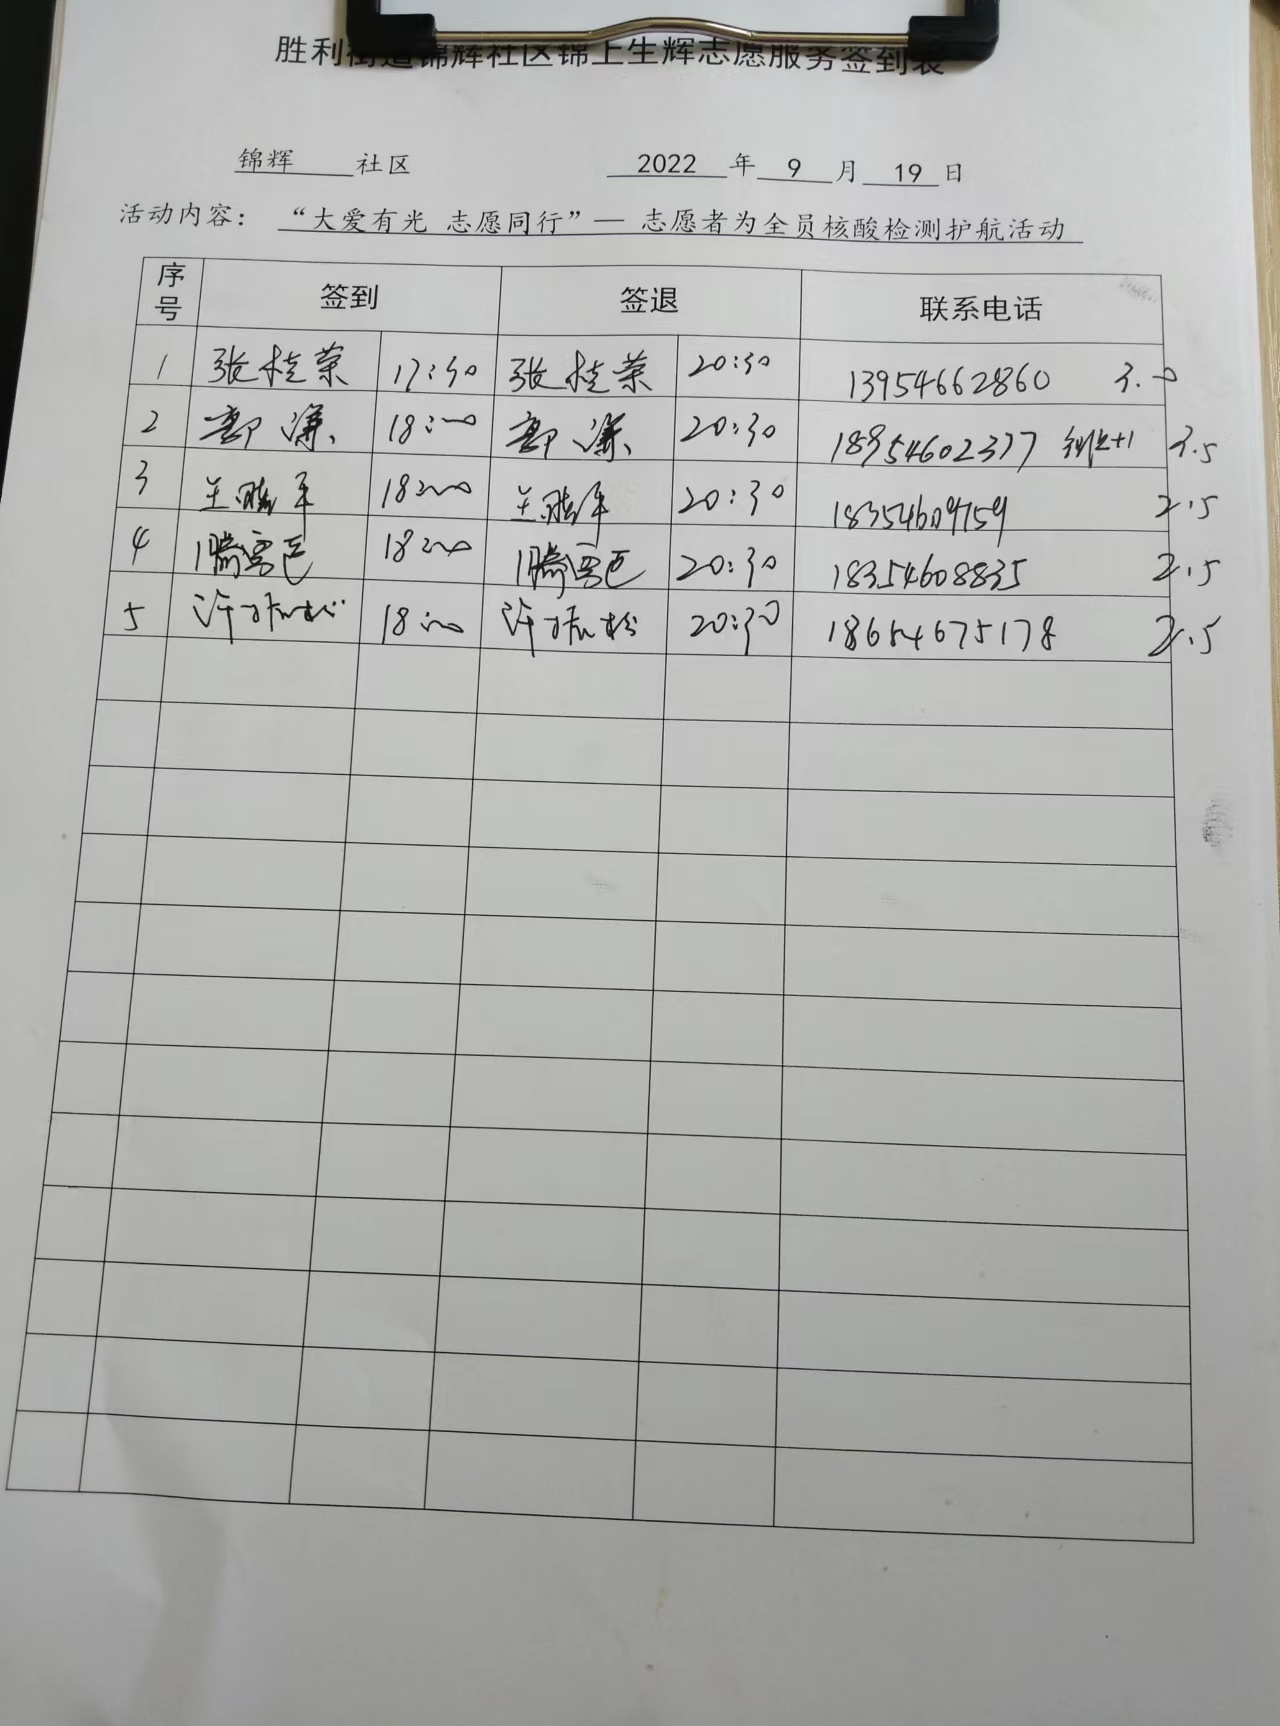 胜利街道锦辉社区锦上生辉志愿服务签到表
锦辉 社区 2022 年 9 月 19 日
活动内容： “大爱有光 志愿同行”— 志愿者为全员核酸检测护航活动
序号 签到 签退 联系电话
1 张桂荣 17:30 张桂荣 20:30 13954662860 3.0
2 18:00 20:30 18954602377 +1 3.5
3 18:00 20:30 18354609759 2.5
4 18:00 20:30 18354608835 2.5
5 许振松 18:00 许振松 20:30 18654675178 2.5